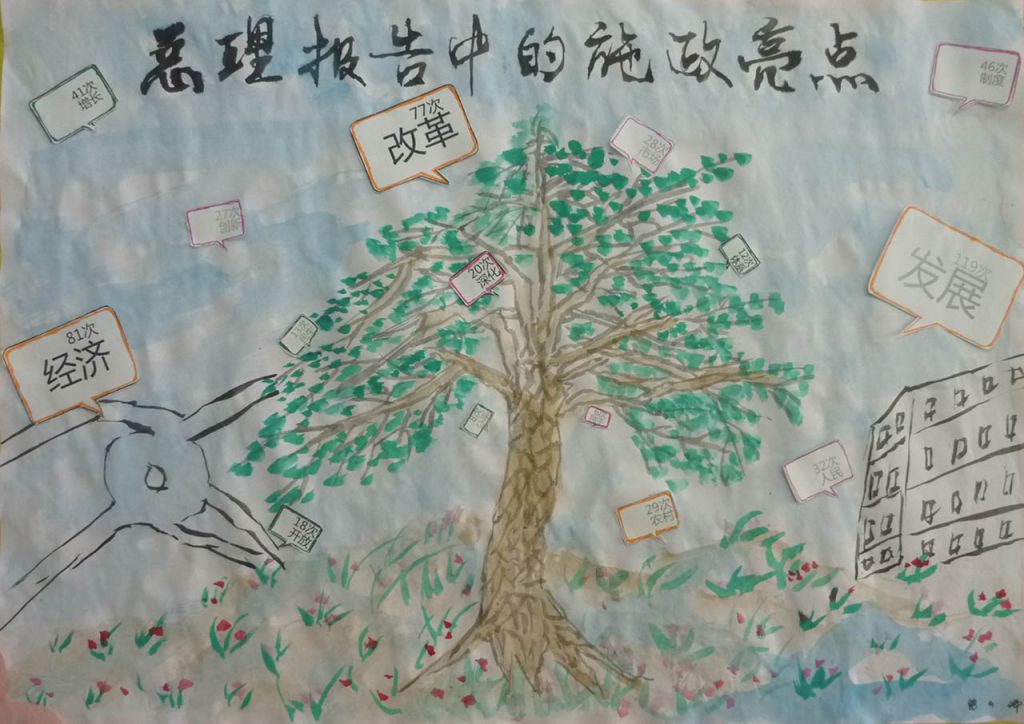 总理报告中的施政亮点
41次
增长
77次
改革
28次
市场
46次
制度
27次
创新
20次
深化
12次
体制
119次
发展
81次
经济
32次
人民
29次
农村
18次
开放